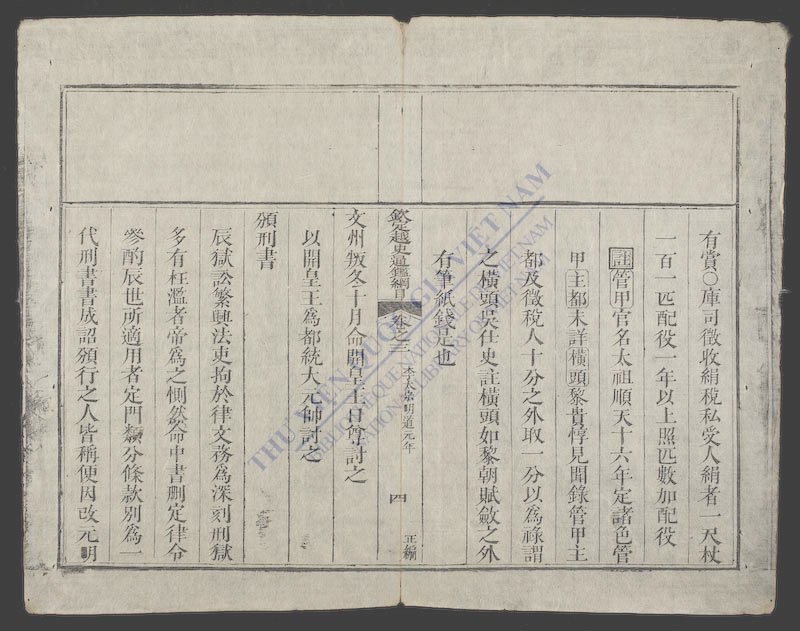 有賞○庫司徵收絹稅私受人絹者一尺杖
一百一匹配役一年以上照匹數加配役
註管甲官名太祖順天十六年定諸色管
甲主都未詳橫頭黎貴惇見聞錄管甲主
都及徵稅人十分之外取一分以爲祿謂
之橫頭吳仕史註橫頭如黎朝賦斂之外
有筆紙錢是也
欽定越史通鑑綱目 卷之三 李太宗明道元年 四 正編
文州叛冬十月命開皇王日尊討之
以開皇王爲都統大元帥討之
頒刑書
辰獄訟繁興法吏拘於律文務爲深刻刑獄
多有枉濫者帝爲之惻然命中書删定律令
參酌辰世所適用者定門類分條款別爲一
代刑書書成詔頒行之人皆稱便因改元明
THƯ VIỆN QUỐC GIA VIỆT NAM
BIBLIOTHÈQUE NATIONALE DU VIETNAM
NATIONAL LIBRARY OF VIETNAM